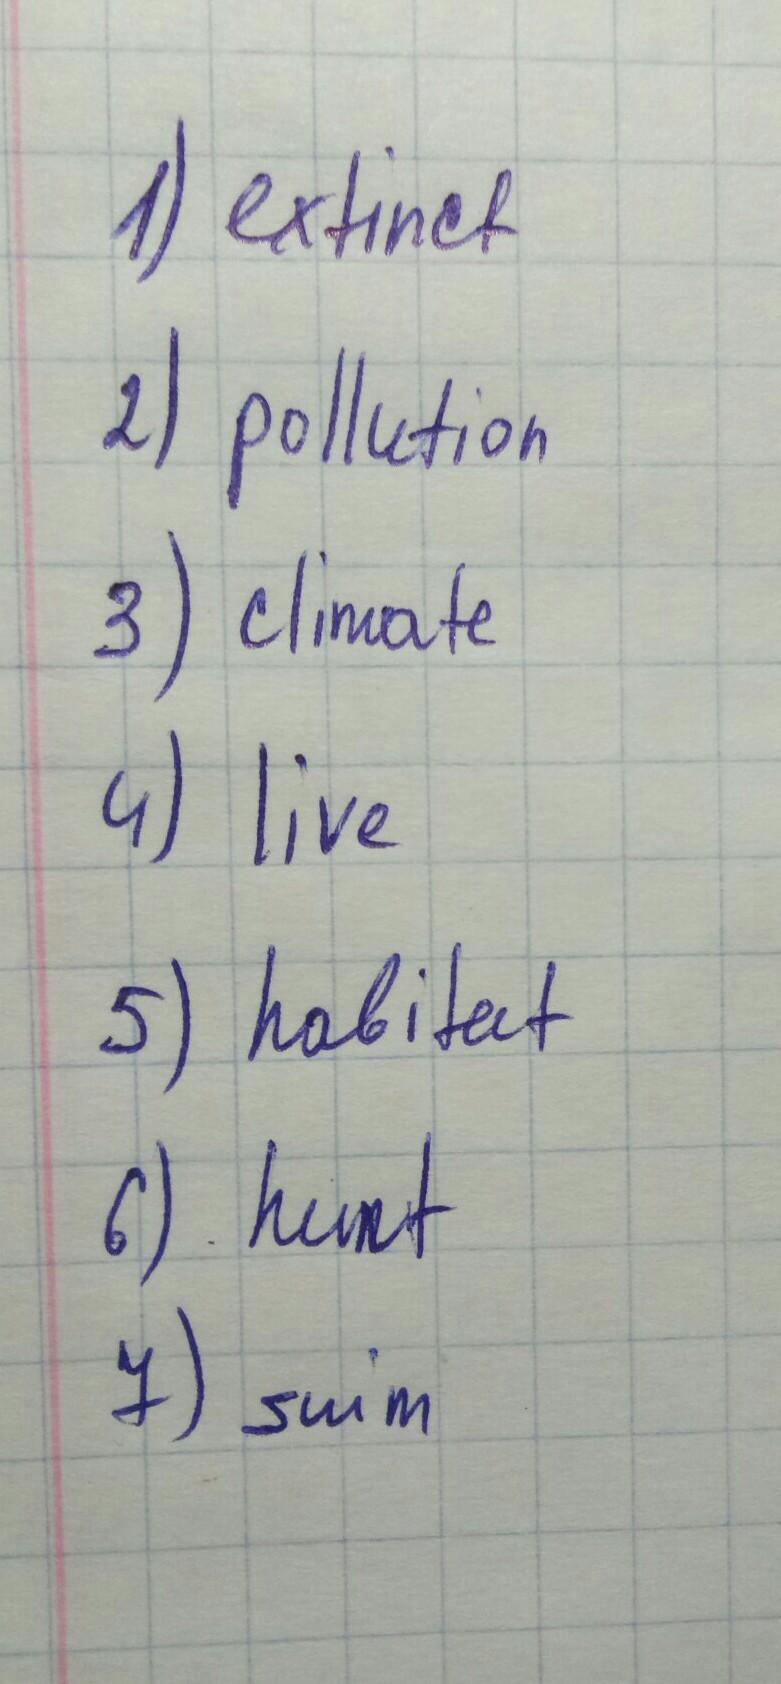 1) extinct
2) pollution
3) climate
4) live
5) habitat
6) hunt
7) swim